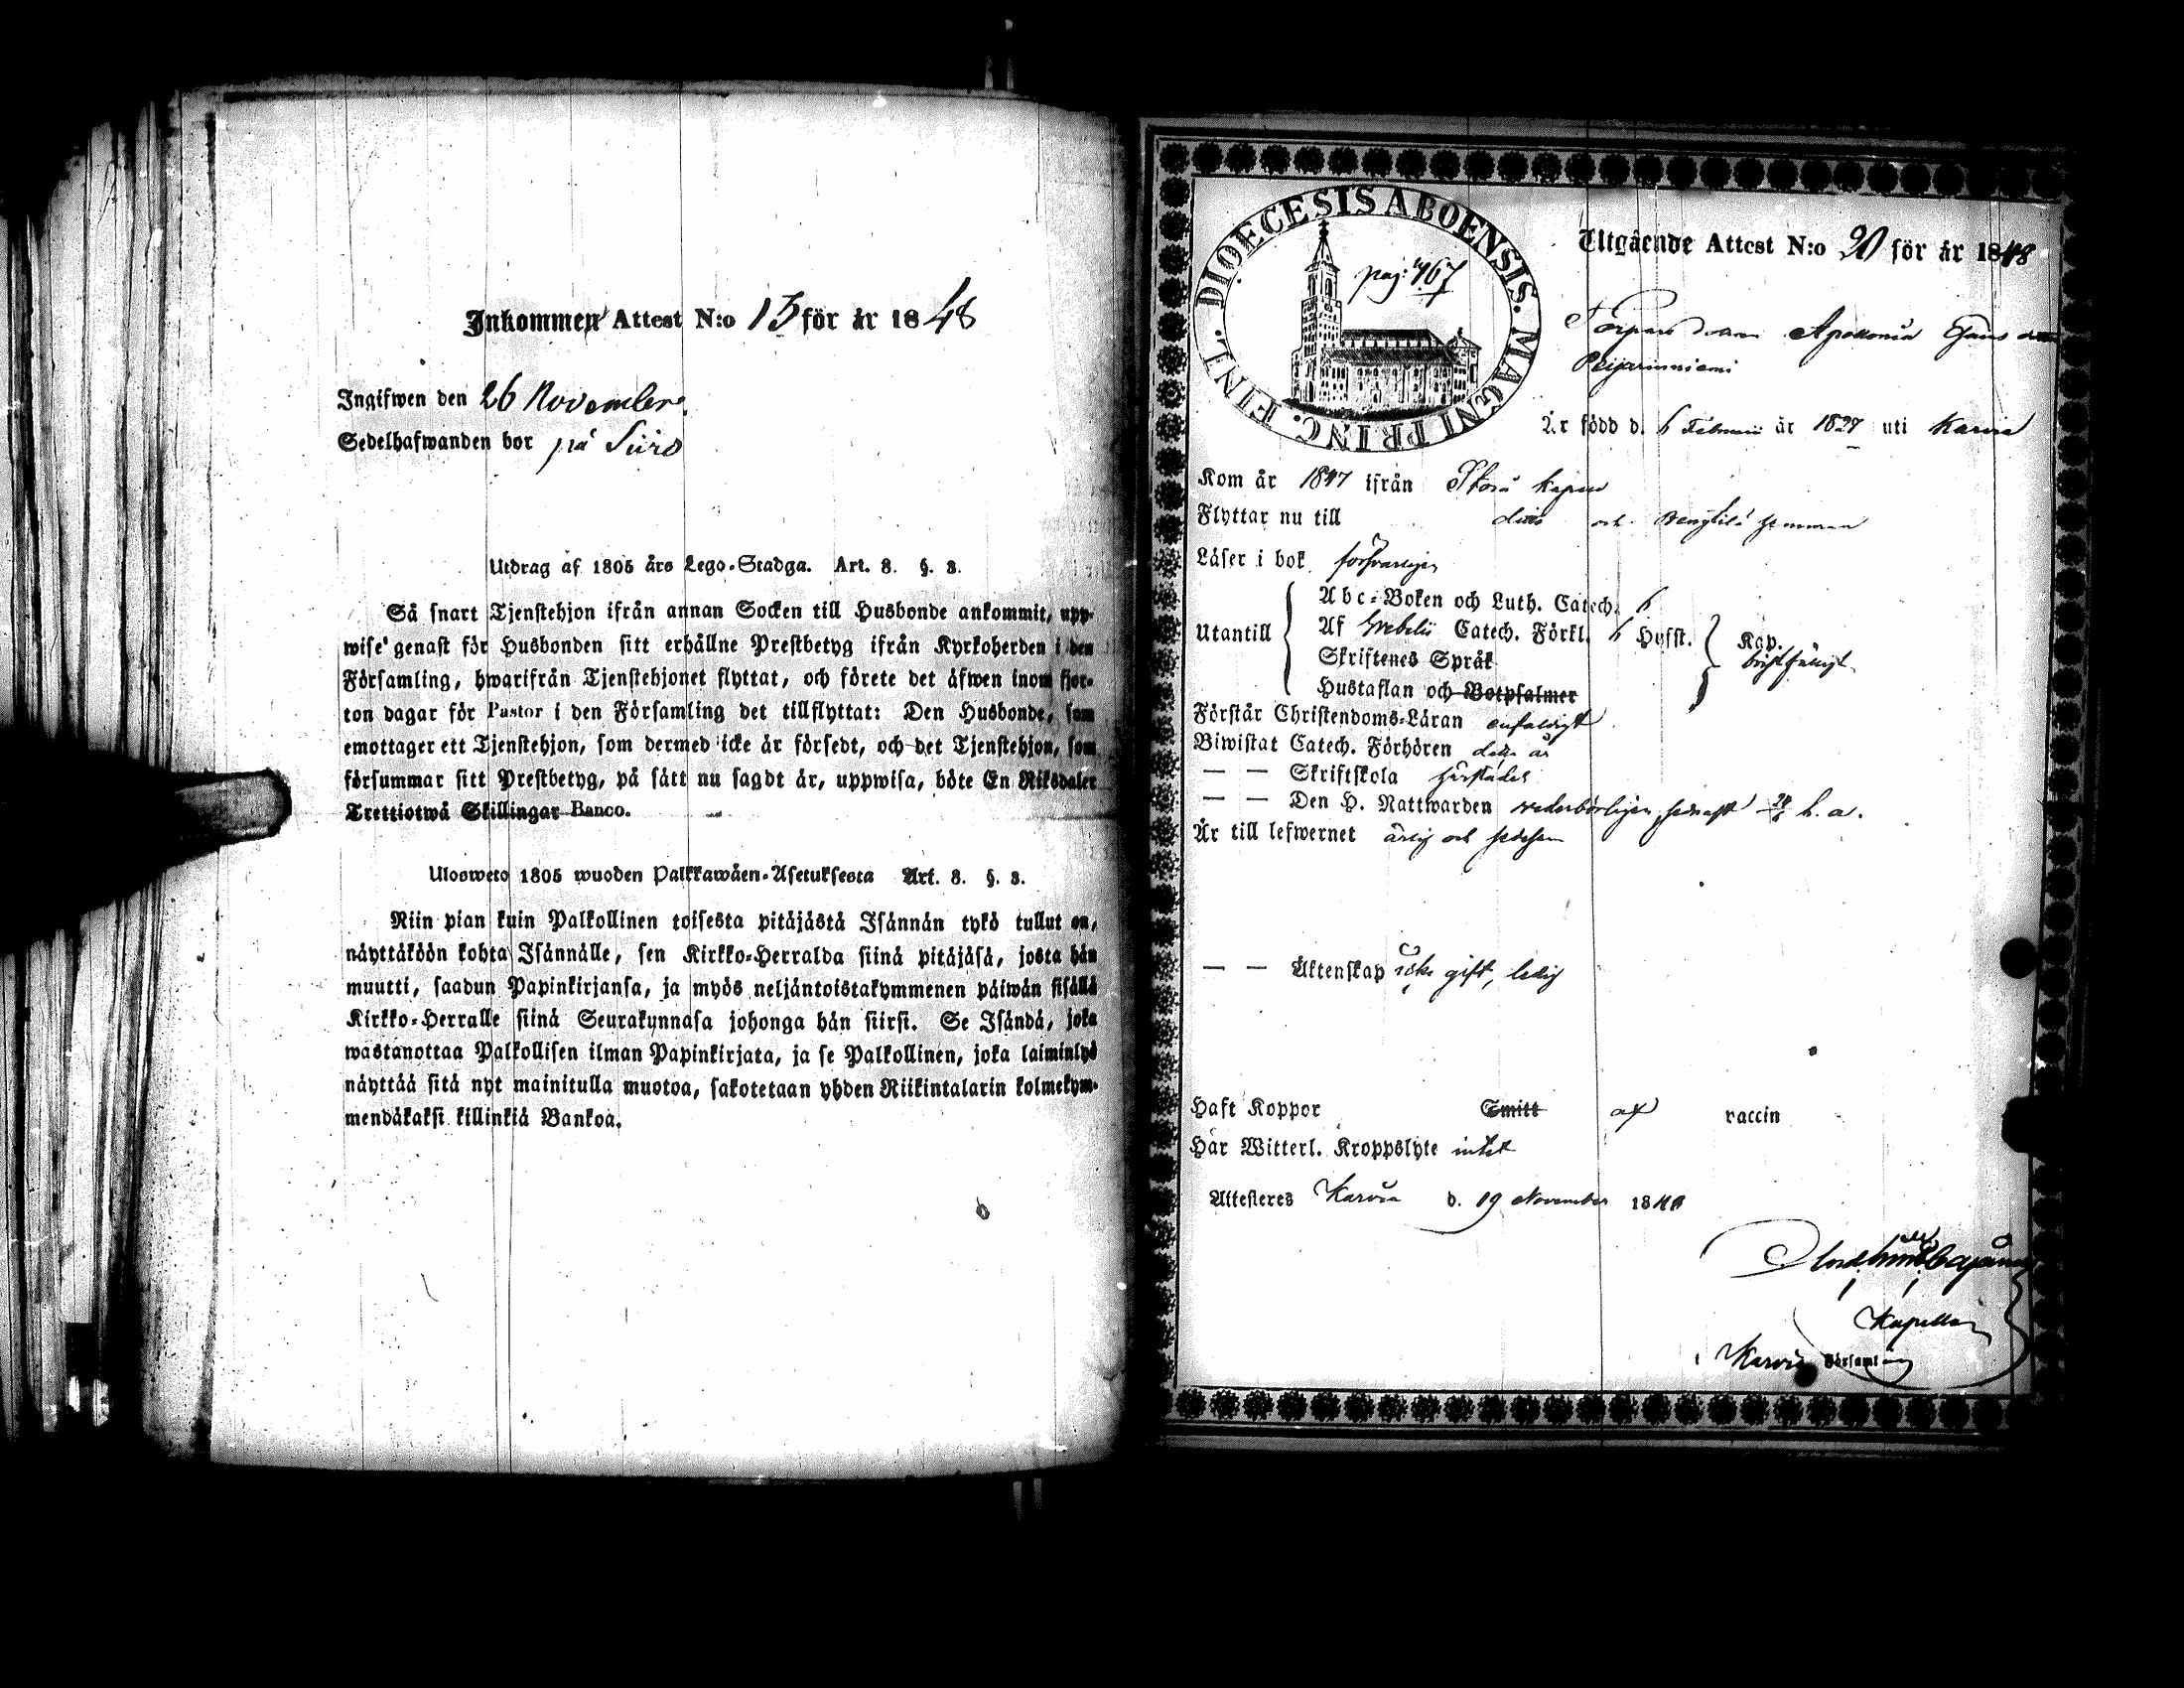 Inkommen Attest N:o 15 för år 1848
Ingifwen den 26 November.
Sedelhafwanden bor på Siiro
Utdrag af 1805 års Lego-Stadga. Art. 8. §. 3.
Så snart Tjenstehjon ifrån annan Socken till Husbonde ankommit, upp-
wise genast för Husbonden sitt erhållne Prestbetyg ifrån Kyrkoherden i den
Församling, hwarifrån Tjenstehjonet flyttat, och förete det äfwen inom fjor-
ton dagar för Pastor i den Församling det tillflyttat: Den Husbonde, som
emottager ett Tjenstehjon, som dermed icke är försedt, och det Tjenstehjon, som
försummar sitt Prestbetyg, på sätt nu sagdt är, uppwisa, böte En Riksdaler
Trettiotwå Skillingar Banco.
Ulosweto 1805 wuoden Palkkawäen-Asetuksesta Art. 8. §. 3.
Niin pian kuin Palkollinen toisesta pitäjästä Isännän tykö tullut on,
näyttäköön kohta Isännälle, sen Kirkko-Herralda siinä pitäjäsä, josta hän
muutti, saadun Papinkirjansa, ja myös neljäntoistakymmenen päiwän sisällä
Kirkko-Herralle siinä Seurakunnasa johonga hän siirsi. Se Isändä, joka
wastanottaa Palkollisen ilman Papinkirjata, ja se Palkollinen, joka laiminlyö
näyttää sitä nyt mainitulla muotoa, sakotetaan yhden Riikintalarin kolmekym-
mendäkaksi killinkiä Bankoa.
DIOECESIS ABOENSIS. MAGNI PRINC. FINL.
pag: 467
Utgående Attest N:o 20 för år 1848
Apollonia
Är född d. 6 Februarii år 1827 uti Karvia
Kom år 1847 ifrån Storå kapell
Flyttar nu till och hemman
Läser i bok försvarligen
Utantill
Abc-Boken och Luth. Catech. 6
Af Svebelii Catech. Förkl. 6 Hufst.
Skriftenes Språk
Hustaflan och Botpsalmer
Kap.
bristfälligt
Förstår Christendoms-Läran enfaldigt
Biwistat Catech. Förhören detta år
— — Skriftskola härstädes
— — Den H. Nattwarden vederbörligen, senast h. a.
Är till lefwernet ärlig och
— — Äktenskap icke gift, ledig
Haft Koppor Smitt af vaccin
Har Witterl. Kroppslyte intet
Attesteres Karvia d. 19 November 1848
Kapellan
i Karvia Församling